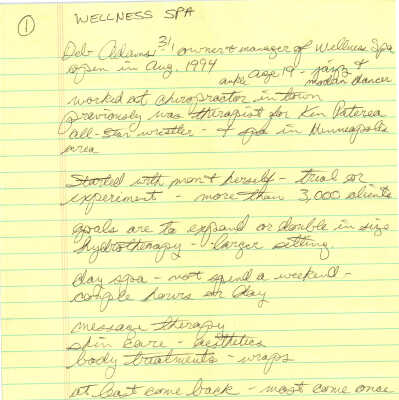 1
WELLNESS SPA
Deb Adams - 31, owner & manager of Wellness Spa
open in Aug. 1994
age 19 - jazz &
modern dancer
worked at chiropractor in town
previously was therapist for Ken Paterea
all-star wrestler - & spa in Minneapolis
area
Started with mom & herself - trial or
experiment - more than 3,000 clients
goals are to expand or double in size
hydrotherapy - larger setting
day spa - not spend a weekend -
couple hours or day
message therapy
skin care - aesthetics
body treatments - wraps
at last come back - most come once